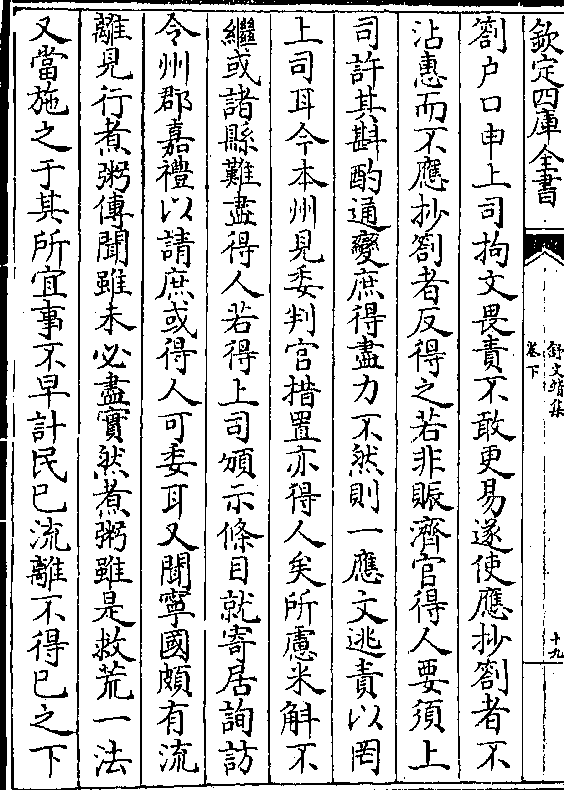 欽定四庫全書
舒文靖集
卷下
十九
劄户口申上司拘文畏責不敢更易遂使應抄劄者不
沾惠而不應抄劄者反得之若非賑濟官得人要須上
司許其斟酌通變庶得盡力不然則一應文逃責以罔
上司耳今本州見委判官措置亦得人矣所慮米斛不
繼或諸縣難盡得人若得上司頒示條目就寄居詢訪
令州郡嘉禮以請庶或得人可委耳又聞寧國頗有流
離見行煮粥傳聞雖未必盡實然煮粥雖是救荒一法
又當施之于其所宜事不早計民已流離不得已之下